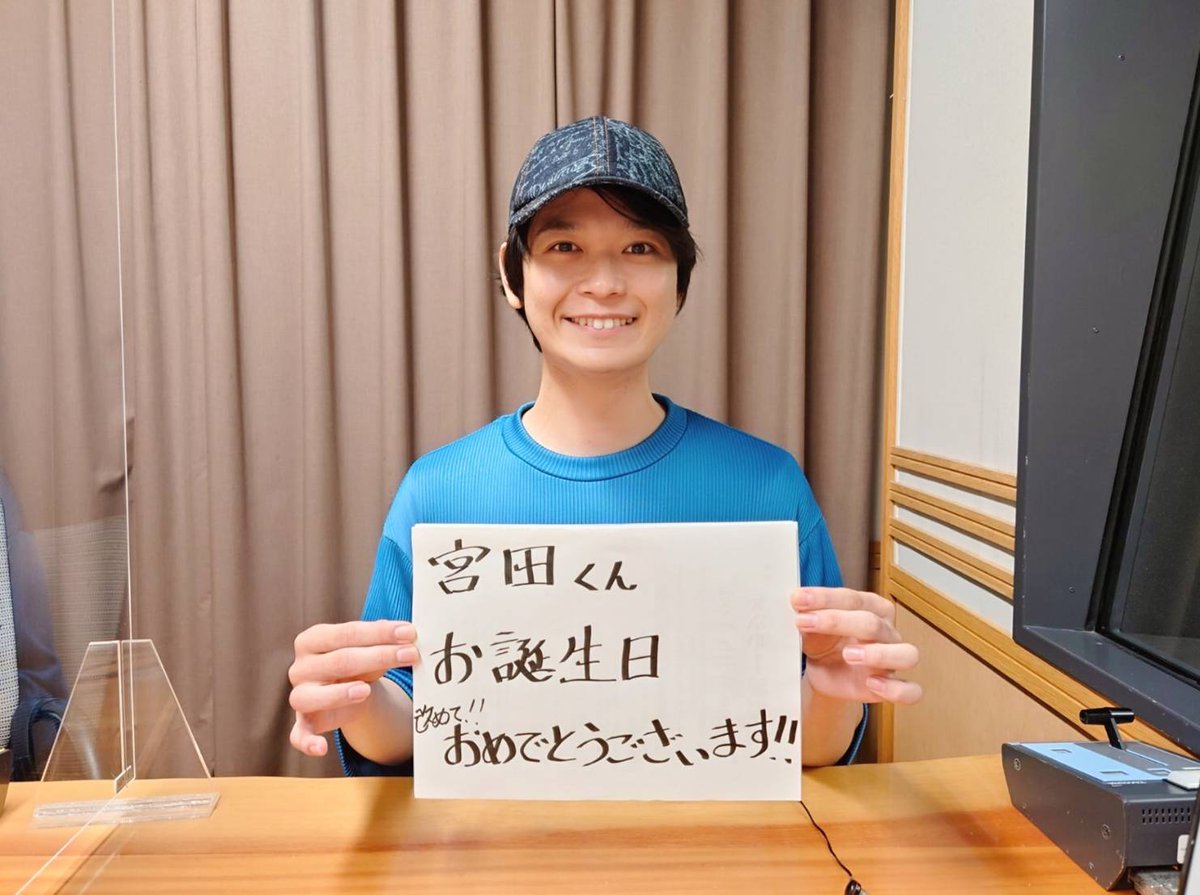 宮田くん
お誕生日
改めて!!
おめでとうございます!!